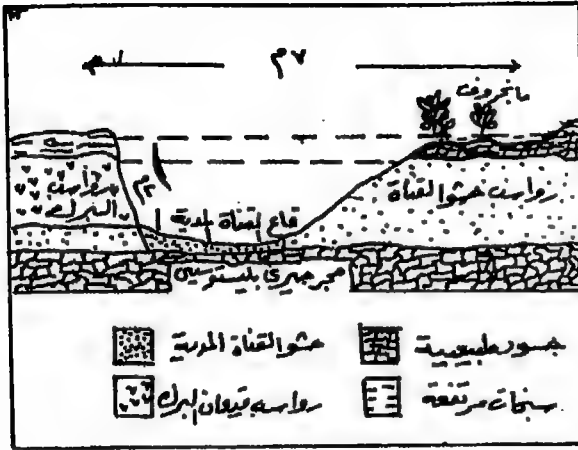 ٧م
مانجروف
رواسب البرك
٢م
رواسب حشو القناة
قاع القناة المدية
حجر جيري بليستوسيني
حشو القناة المدية
جسور طبيعية
رواسب قيعان البرك
سبخات مرتفعة